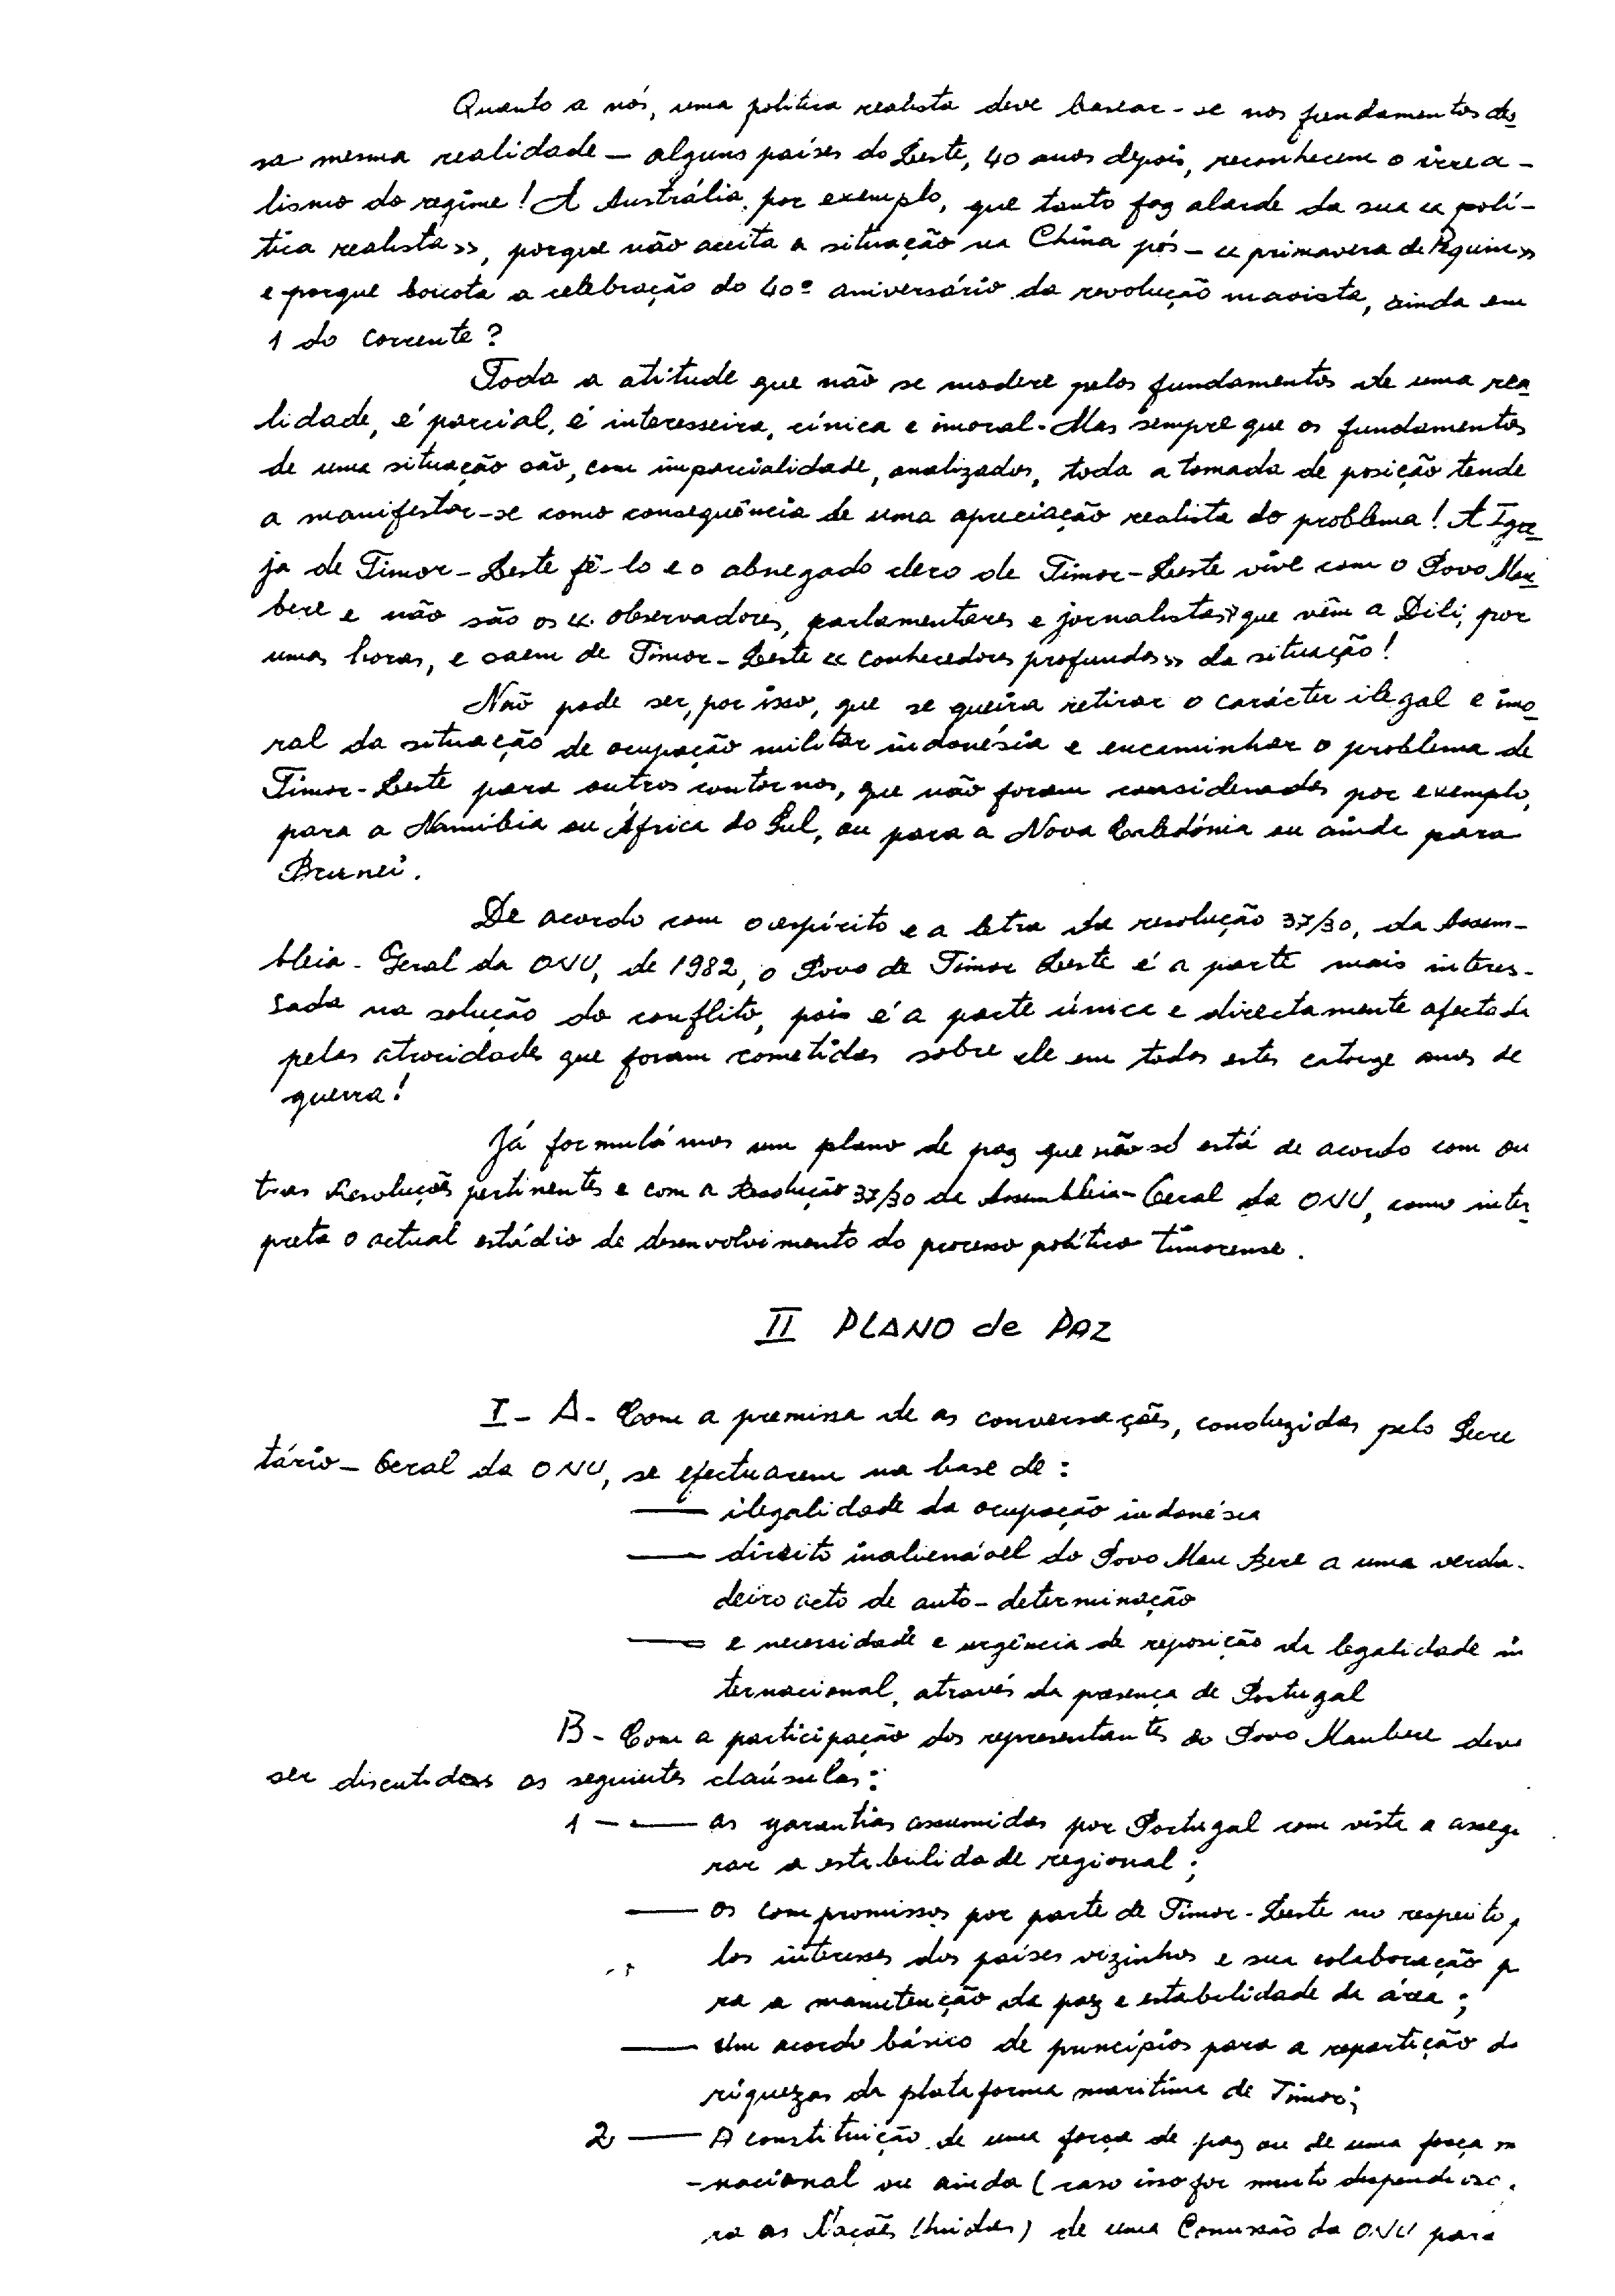 Quanto a nós, uma política realista deve basear-se nos fundamentos des
sa mesma realidade — alguns países do Leste, 40 anos depois, reconhecem o irrea-
lismo do regime! A Austrália, por exemplo, que tanto faz alarde da sua « polí-
tica realista», porque não aceita a situação na China pós-« primavera de Pequim»
e porque boicota a celebração do 40º aniversário da revolução maoista, ainda em
1 do corrente?
Toda a atitude que não se modere pelos fundamentos de uma rea
lidade, é parcial, é interesseira, cínica e imoral. Mas sempre que os fundamentos
de uma situação são, com imparcialidade, analizados, toda a tomada de posição tende
a manifestar-se como consequência de uma apreciação realista do problema! A Igre
ja de Timor-Leste fê-lo e o abnegado clero de Timor-Leste vive com o Povo Mau
bere e não são os « observadores, parlamentares e jornalistas» que vêm a Dili, por
umas horas, e saem de Timor-Leste « conhecedores profundos» da situação!
Não pode ser, por isso, que se queira retirar o carácter ilegal e imo
ral da situação de ocupação militar indonésia e encaminhar o problema de
Timor-Leste para outros contornos, que não foram considerados por exemplo,
para a Namíbia ou África do Sul, ou para a Nova Caledónia ou ainda para
Brunei.
De acordo com o espírito e a letra da resolução 37/30, da Assem-
bleia-Geral da ONU, de 1982, o Povo de Timor Leste é a parte mais interes-
sada na solução do conflito, pois é a parte única e directamente afectada
pelas atrocidades que foram cometidas sobre ele em todos estes catorze anos de
guerra!
Já formulámos um plano de paz que não só está de acordo com ou
tras Resoluções pertinentes e com a Resolução 37/30 da Assembleia-Geral da ONU, como inter
preta o actual estádio de desenvolvimento do processo político timorense.
II PLANO de PAZ
I - A - Com a premissa de as conversações, conduzidas pelo Secre
tário-Geral da ONU, se efectuarem na base de:
— ilegalidade da ocupação indonésia
— direito inalienável do Povo Mau Bere a uma verda-
deiro acto de auto-determinação
— e necessidade e urgência de reposição da legalidade in
ternacional, através da presença de Portugal
B - Com a participação dos representantes do Povo Maubere deve
ser discutidas as seguintes claúsulas:
1 - — as garantias assumidas por Portugal com vista a assegu
rar a estabilidade regional;
— os compromissos por parte de Timor-Leste no respeito p
los interesses dos países vizinhos e sua colaboração p
ra a manutenção da paz e estabilidade da área;
— Um acordo básico de princípios para a repartição d
riquezas da plataforma marítima de Timor;
2 — A constituição de uma força de paz ou de uma força m
-nacional ou ainda (caso isso for muito dispendioso
ra as Nações Unidas) de uma Comissão da ONU para